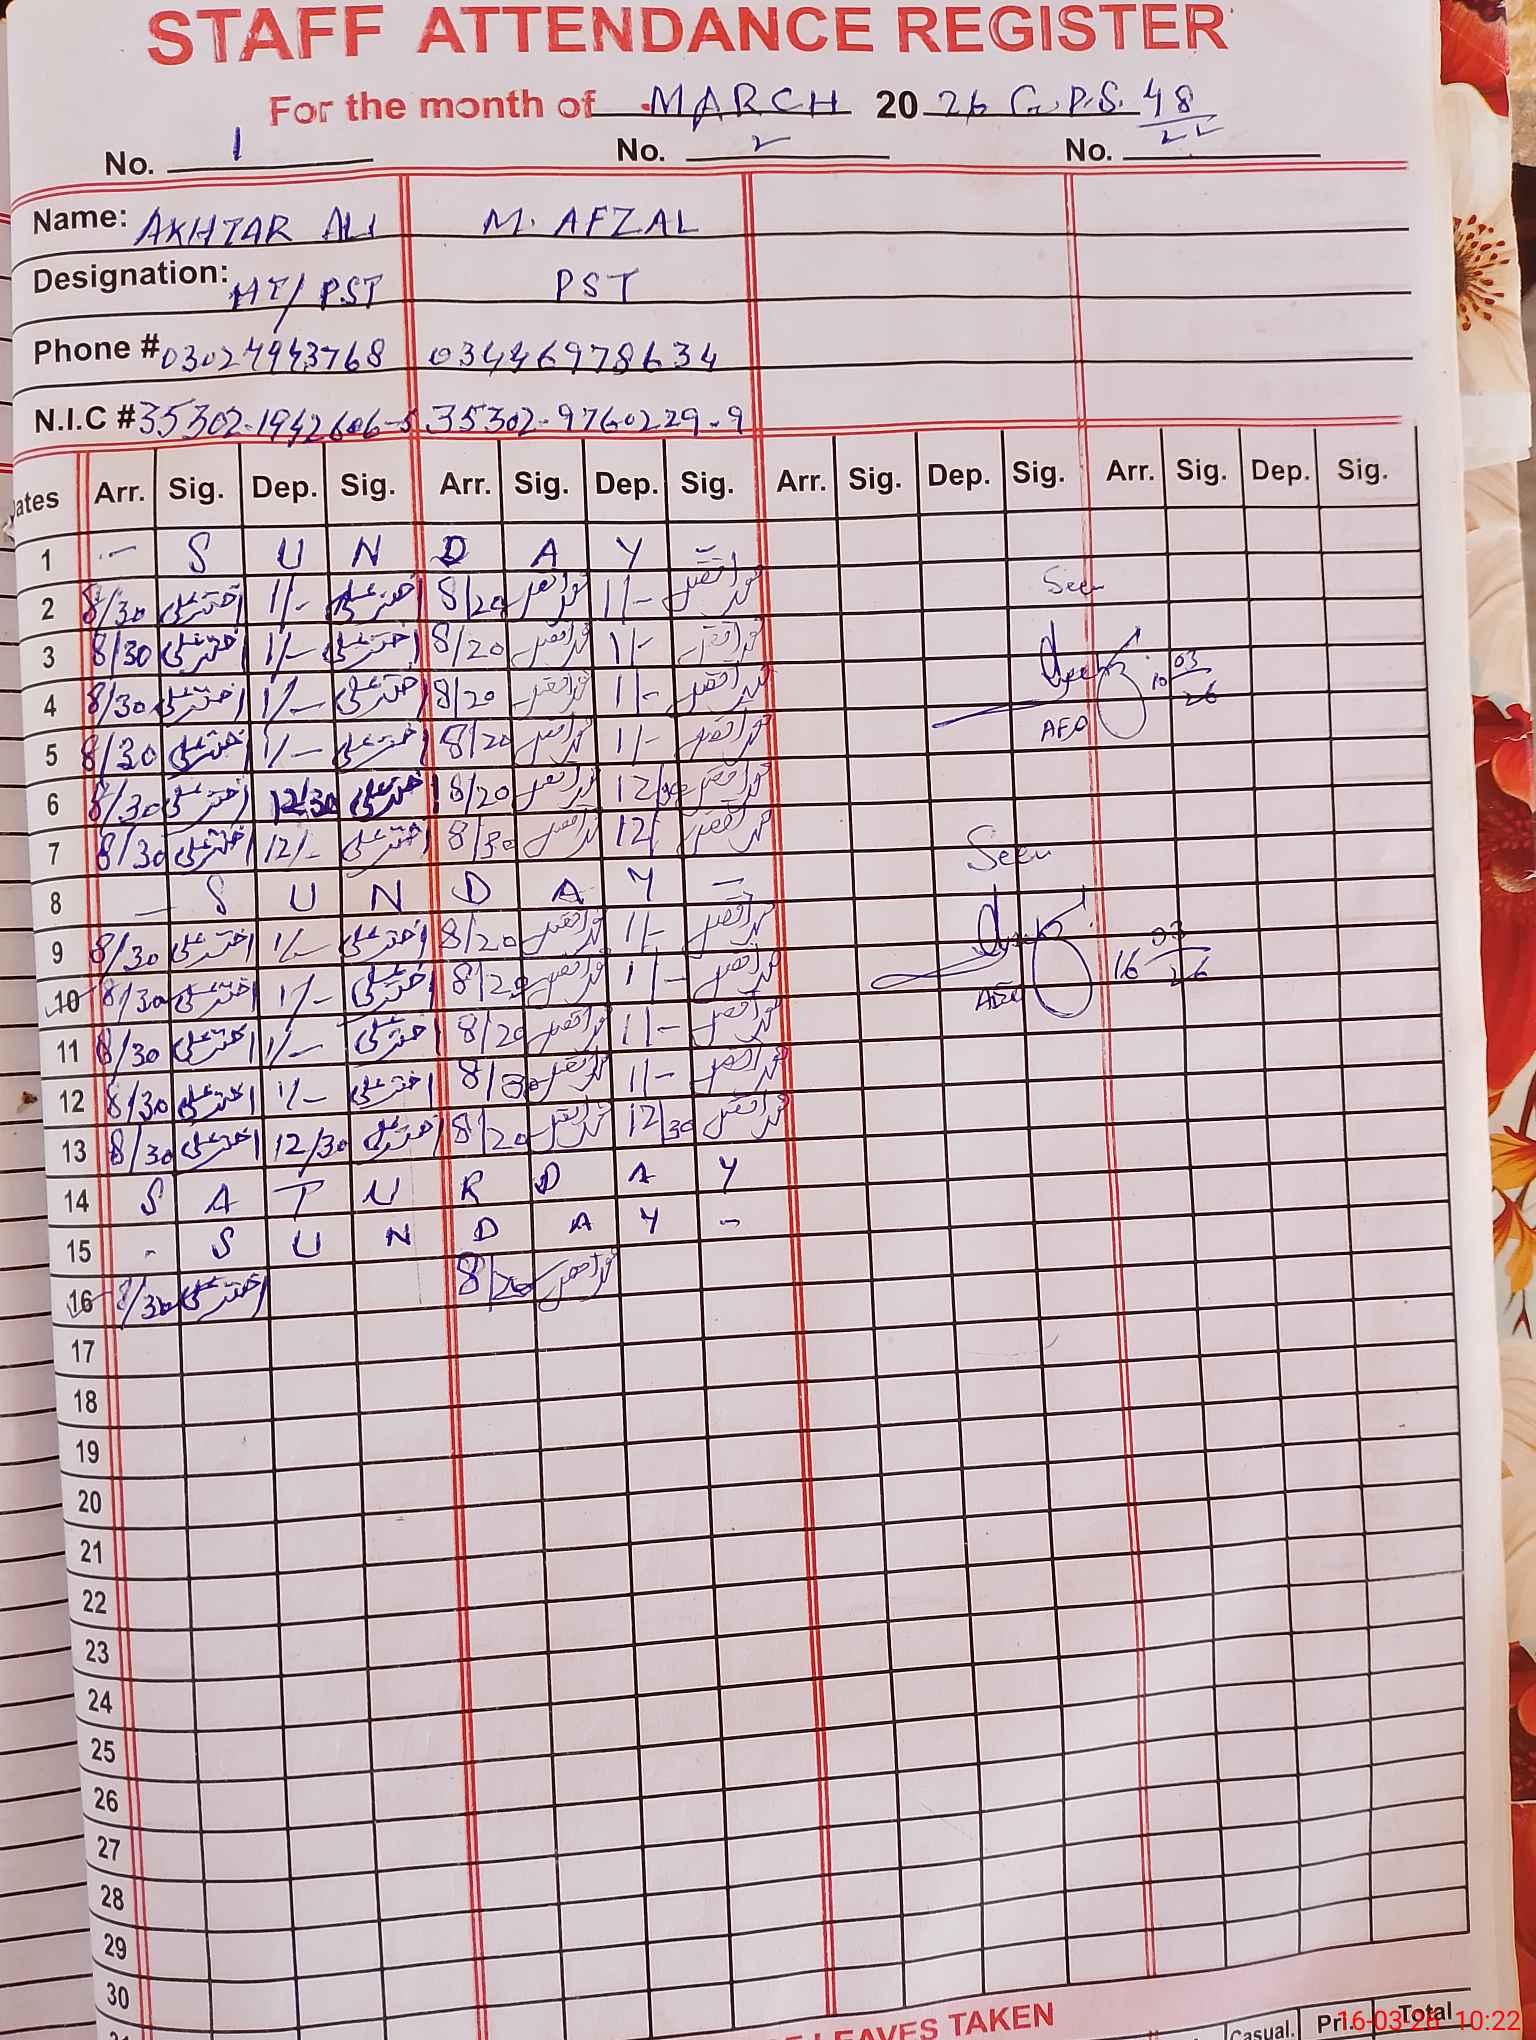 STAFF ATTENDANCE REGISTER
For the month of MARCH 2026 G.P.S. 48
No. 1 No. 2 No.
Name: AKHTAR ALI M. AFZAL
Designation: HT/PST PST
Phone # 03027943768 03446978634
N.I.C # 35302-1942606-5 35302-9760229-9
Dates Arr. Sig. Dep. Sig. Arr. Sig. Dep. Sig. Arr. Sig. Dep. Sig. Arr. Sig. Dep. Sig.
1 - S U N D A Y -
2 8/30 اختر علی 1/- اختر علی 8/20 محمد افضل 1/- محمد افضل Seen
3 8/30 اختر علی 1/- اختر علی 8/20 محمد افضل 1/- محمد افضل 10 03
4 8/30 اختر علی 1/- اختر علی 8/20 محمد افضل 1/- محمد افضل 26
5 8/30 اختر علی 1/- اختر علی 8/20 محمد افضل 1/- محمد افضل
6 8/30 اختر علی 12/30 اختر علی 8/20 محمد افضل 12/30 محمد افضل
7 8/30 اختر علی 12/- اختر علی 8/30 محمد افضل 12/ محمد افضل Seen
8 - S U N D A Y -
9 8/30 اختر علی 1/- اختر علی 8/20 محمد افضل 1/- محمد افضل 16 03
10 8/30 اختر علی 1/- اختر علی 8/20 محمد افضل 1/- محمد افضل 26
11 8/30 اختر علی 1/- اختر علی 8/20 محمد افضل 1/- محمد افضل
12 8/30 اختر علی 1/- اختر علی 8/30 محمد افضل 1/- محمد افضل
13 8/30 اختر علی 12/30 اختر علی 8/20 محمد افضل 12/30 محمد افضل
14 S A T U R D A Y
15 - S U N D A Y -
16 8/30 اختر علی 8/20 محمد افضل
17
18
19
20
21
22
23
24
25
26
27
28
29
30
LEAVES TAKEN Casual. Pri. Total
16-03-26 10:22